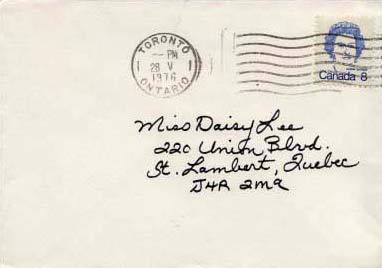 TORONTO
- PM
28 V
1976
ONTARIO
Canada 8
Miss Daisy Lee
220 Union Blvd.
St. Lambert, Quebec
J4R 2M9